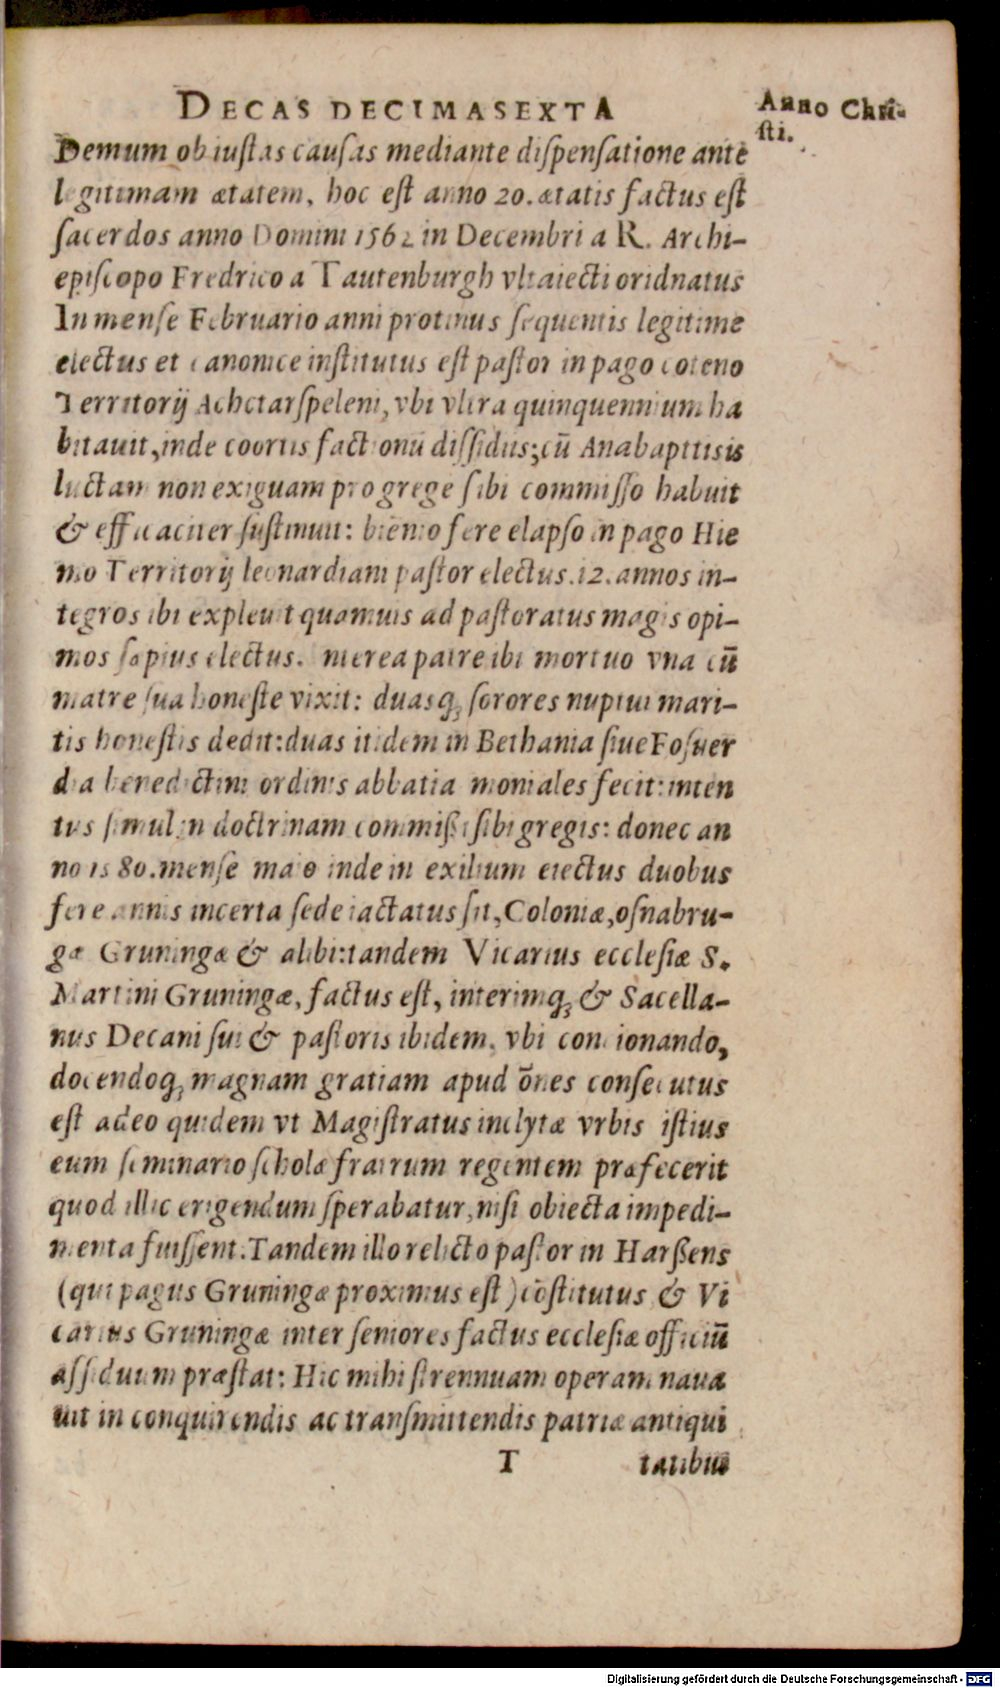 DECAS DECIMASEXTA
Anno Chri-
sti.
Demum ob iustas causas mediante dispensatione ante
legitimam ætatem, hoc est anno 20. ætatis factus est
sacerdos anno Domini 1562 in Decembri a R. Archi-
episcopo Fredrico a Tautenburgh vltaiecti oridnatus
In mense Februario anni protinus sequentis legitime
electus et canonice institutus est pastor in pago coteno
Territorij Achctarspeleni, vbi vltra quinquennium ha
bitauit, inde coortis factionū dissidiis; cū Anabaptisis
luctam non exiguam pro grege sibi commisso habuit
& efficaciter sustinuit: biēnio fere elapso in pago Hie
mo Territorij leonardiani pastor electus. 12. annos in-
tegros ibi expleuit quamuis ad pastoratus magis opi-
mos sæpius electus. nterea patre ibi mortuo vna cū
matre sua honeste vixit: duasq; sorores nuptui mari-
tis honestis dedit: duas itidem in Bethania siue Fosuer
dia benedictini ordinis abbatia moniales fecit: inten
tus simul in doctrinam commißi sibi gregis: donec an
no 1580. mense maio inde in exilium eiectus duobus
fere annis incerta sede iactatus sit, Coloniæ, osnabru-
gæ Gruningæ & alibi: tandem Vicarius ecclesiæ S.
Martini Gruningæ, factus est, interimq; & Sacella-
nus Decani sui & pastoris ibidem, vbi concionando,
docendoq; magnam gratiam apud ōnes consecutus
est adeo quidem vt Magistratus inclytæ vrbis istius
eum seminario scholæ fratrum regentem præfecerit
quod illic erigendum sperabatur, nisi obiecta impedi-
menta fuissent. Tandem illo relicto pastor in Harßens
(qui pagus Gruningæ proximus est) cōstitutus & Vi
carius Gruningæ inter seniores factus ecclesiæ officiū
assiduum præstat: Hic mihi strennuam operam naua
uit in conquirendis ac transmittendis patriæ antiqui
T tatibus
Digitalisierung gefördert durch die Deutsche Forschungsgemeinschaft - DFG